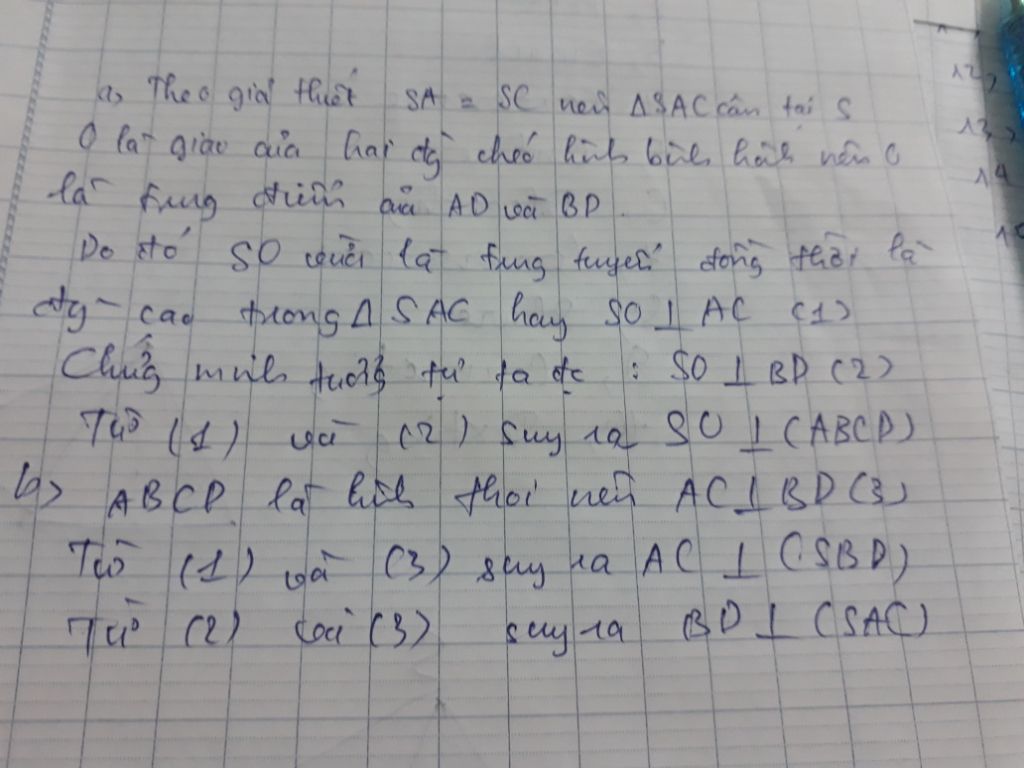 a, Theo giả thuết SA = SC nên ΔSAC cân tại S
O là giao của hai đg chéo hình bình hành nên O
là trung điểm của AD và BD.
Do đó SO vừa là trung tuyến đồng thời là
đg cao trong Δ SAC hay SO ⊥ AC (1)
Chứng minh tương tự ta đc : SO ⊥ BD (2)
Từ (1) và (2) suy ra SO ⊥ (ABCD)
b> ABCD là hình thoi nên AC ⊥ BD (3)
Từ (1) và (3) suy ra AC ⊥ (SBD)
Từ (2) và (3) suy ra BD ⊥ (SAC)
12,
13,
14